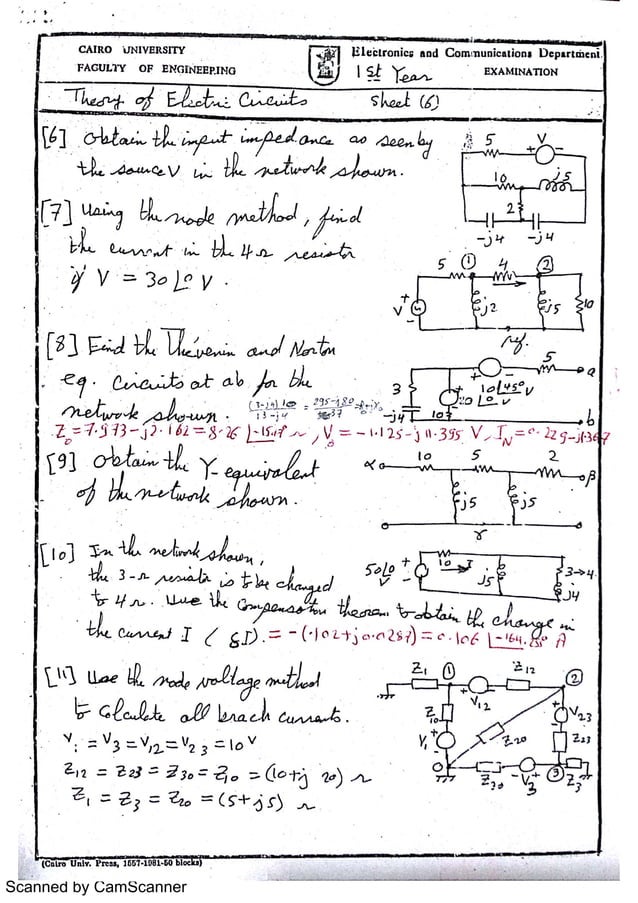 CAIRO UNIVERSITY
FACULTY OF ENGINEERING
Electronics and Communications Department
1st Year EXAMINATION
Theory of Electric Circuits Sheet (6)
[6] Obtain the input impedance as seen by
the source V in the network shown.
5 V
10 j5
2
-j4 -j4
[7] Using the node method, find
the current in the 4Ω resistor
if V = 30∠0° V.
5 ① 4 ②
V + - j2 j5 10
ref.
[8] Find the Thévenin and Norton
eq. circuits at ab for the
network shown.
5 a
3 10∠45° V
-j4 10 20∠0 V b
Z₀ = 7.973 - j2.162 = 8.26 ∠-15.17° Ω, V₀ = -1.125 - j11.395 V, I_N = 0.229 - j1.367
[9] Obtain the Y-equivalent
of the network shown.
α 10 5 2 β
j5 j5
γ
[10] In the network shown,
the 3-Ω resistor is to be changed
to 4Ω. Use the Compensation theorem to obtain the change in
the current I (δI). = -(.102 + j0.0287) = 0.106 ∠-164.25° A
50∠0 V + - 10 I j5 3→4
j4
[11] Use the node voltage method
to Calculate all brach currents.
V₁ = V₃ = V₁₂ = V₂₃ = 10 V
Z₁₂ = Z₂₃ = Z₃₀ = Z₁₀ = (10 + j 20) Ω
Z₁ = Z₃ = Z₂₀ = (5 + j5) Ω
Z₁ ① Z₁₂ ②
V₁₂ V₂₃
Z₁₀ Z₂₀ Z₂₃
V₁
0 Z₃₀ V₃ ③ Z₃
(Cairo Univ. Press, 1557-1981-50 blocks)
Scanned by CamScanner